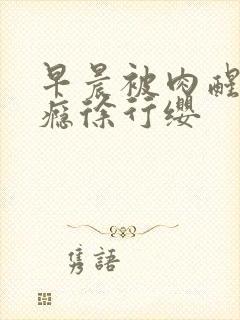 早晨被肉醒
瘾徐行缨
隽語